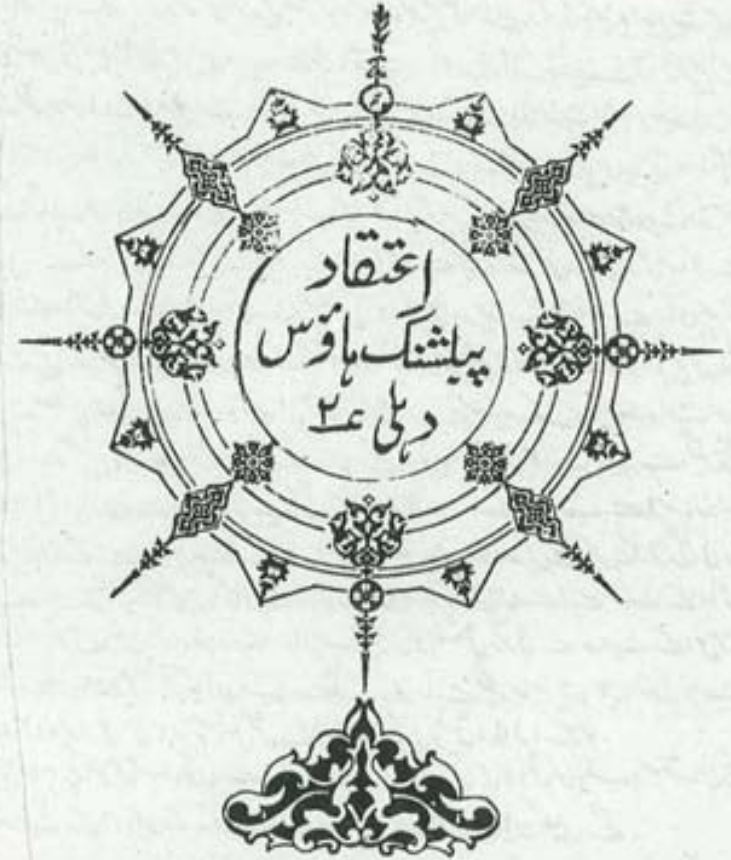 اعتقاد
پبلشنگ ہاؤس
دہلی ۲